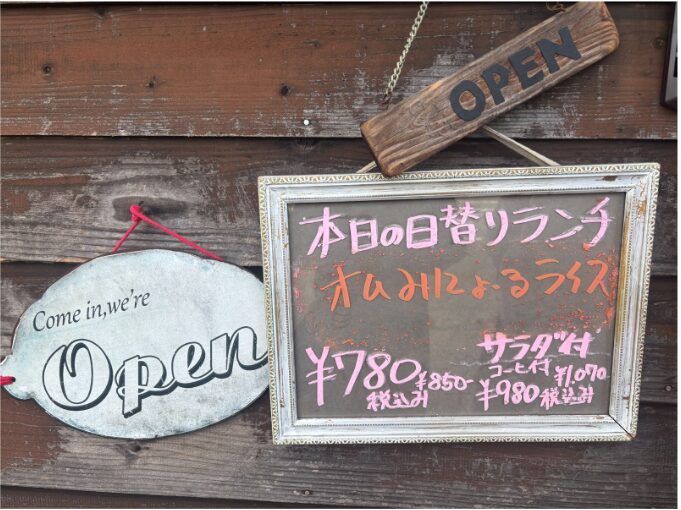 OPEN
本日の日替りランチ
オムみにょーるライス
¥780
¥850-
税込み
サラダ付
コーヒー付
¥980
¥1,070
税込み
Come in,we're
Open